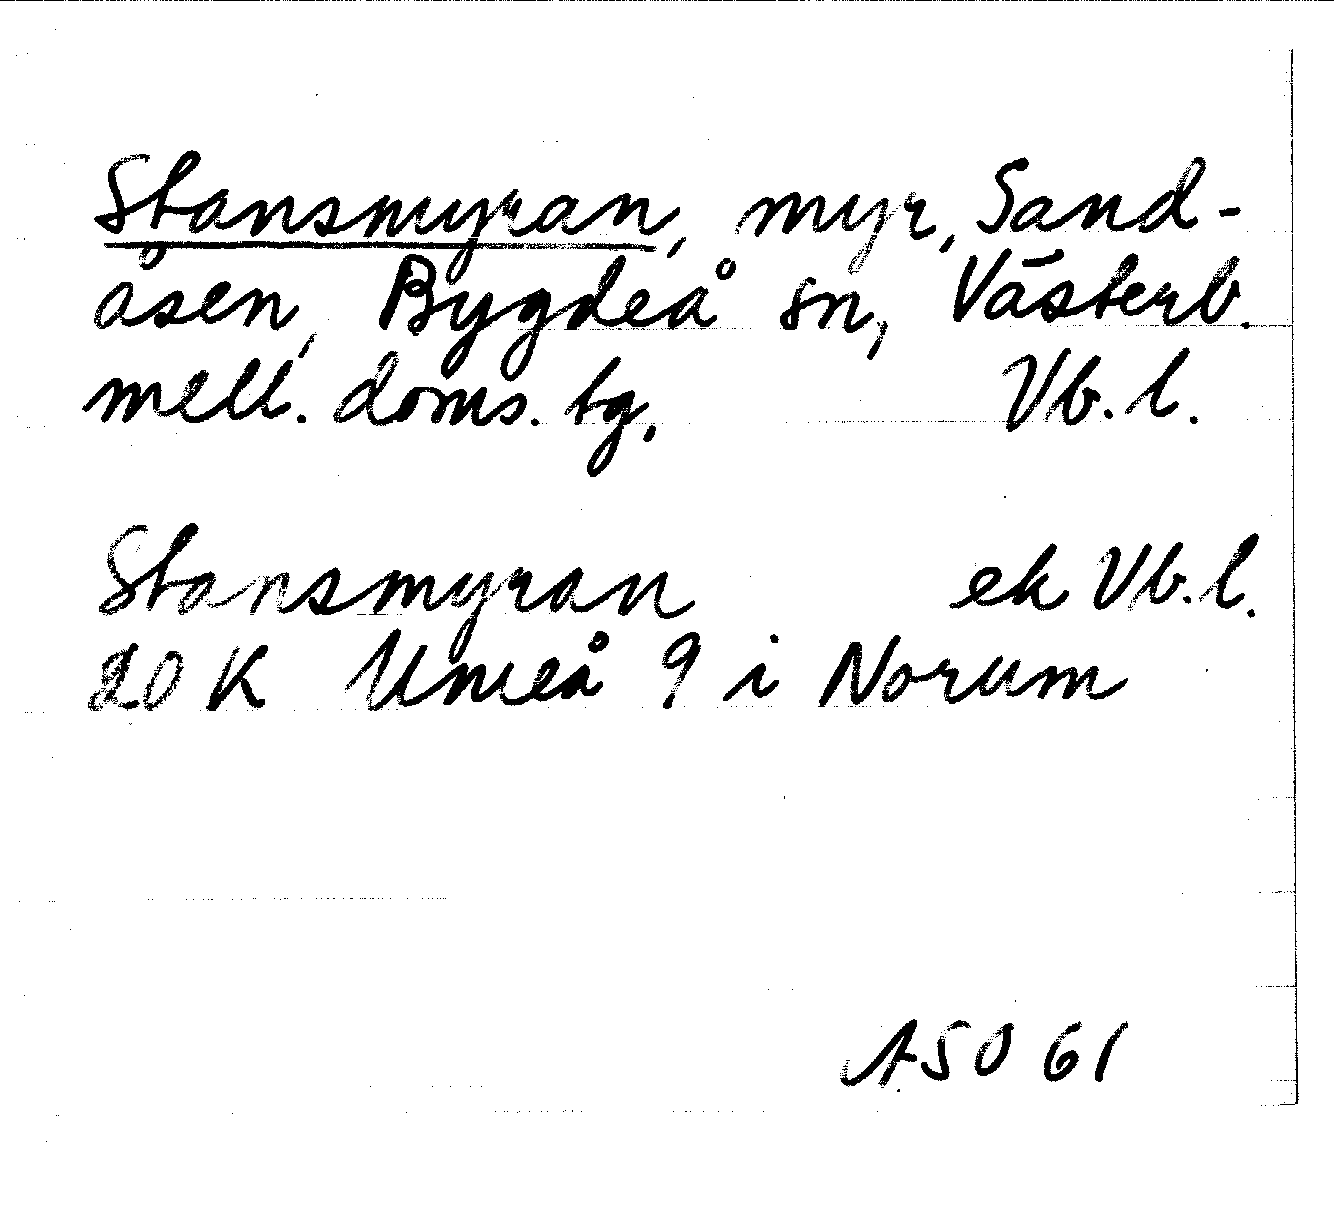 Stansmyran, myr, Sand-
åsen, Bygdeå sn, Västerb.
mell. doms. tg. Vb. l.
Stansmyran ek Vb. l.
20 K Umeå 9 i Norum
ASO 61